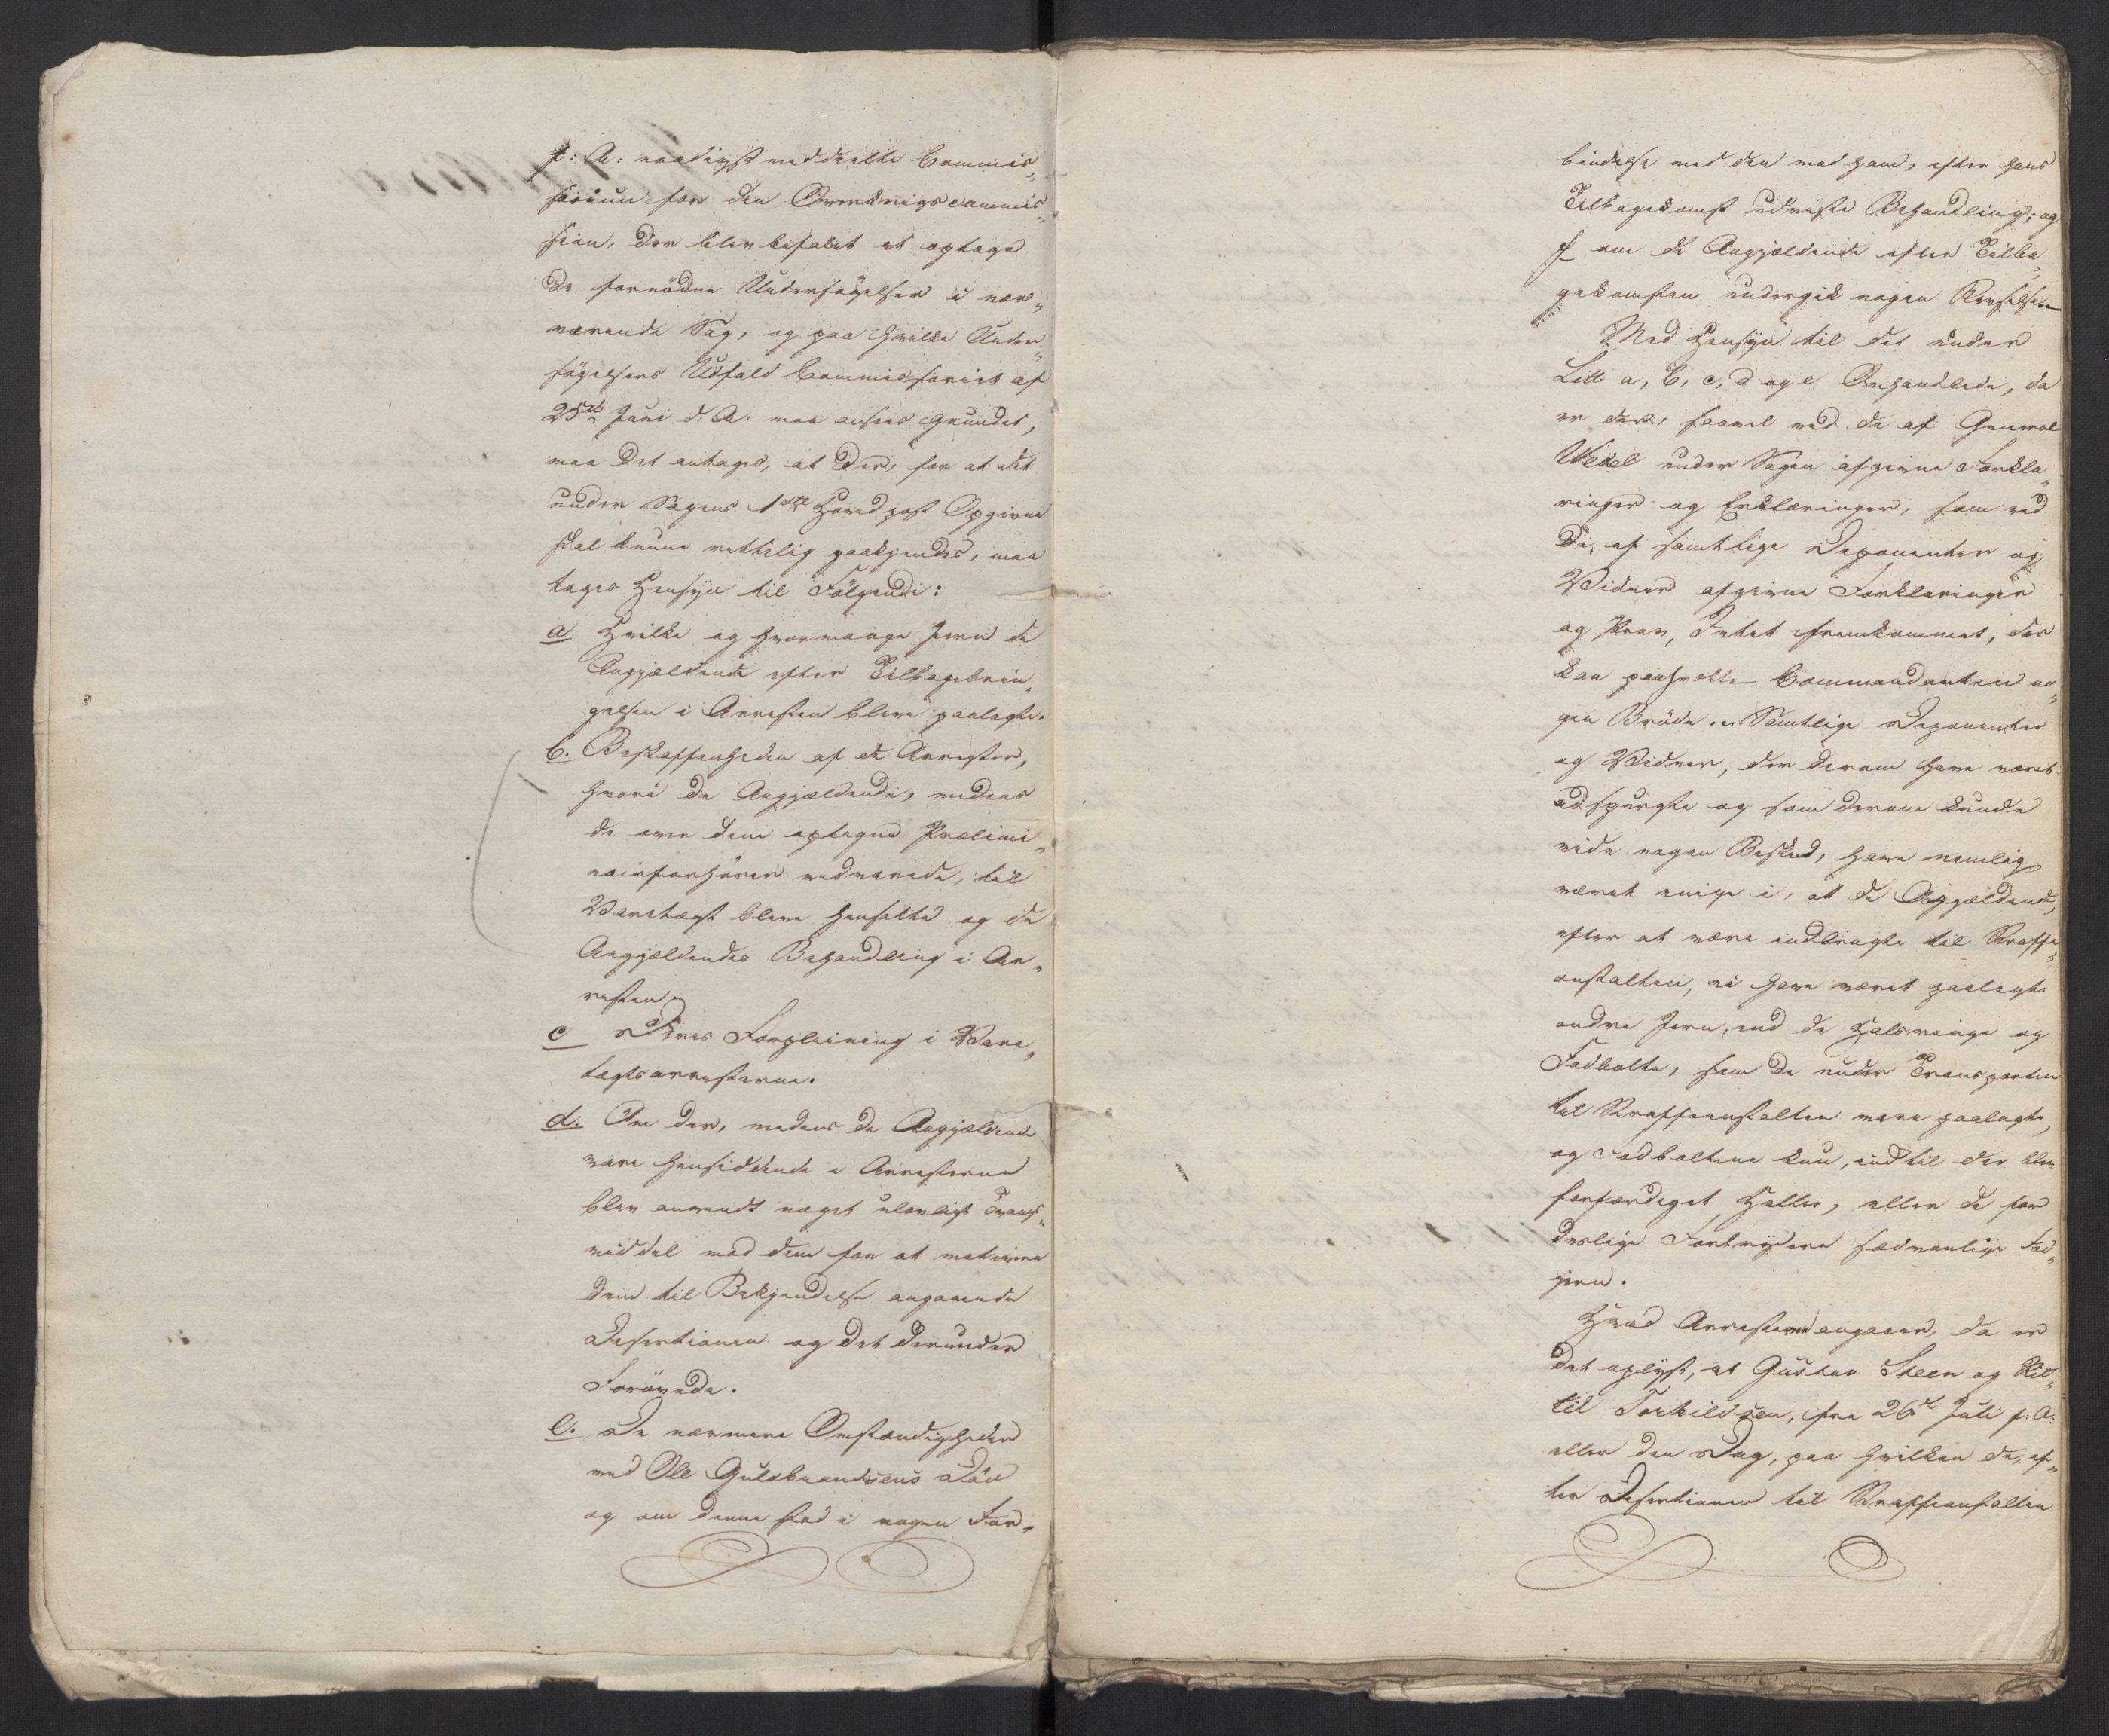 f: A: naadigst meddeelte Commis„
sorium for den Overkrigscommis„
sion, der blev befalet at optage
de fornødne Undersøgelser i nær„
værende Sag, og paa hvilke Under„
søgelsers Udfald Commissoriet af
25de Juni d: A: maa ansees grundet,
maa det antages, at der, for at det
under Sagens 1ste Hovedpost Opgivne
skal kunne rettelig paakjendes, maa
tages Hensyn til Følgende:
a. Hvilke og hvormange Jern de
Angjældende efter Tilbagebrin„
gelsen i Arresten bleve paalagte.
b. Beskaffenheden af de Arrester,
hvori de Angjældende, medens
de over dem optagne Prælimi„
nairforhører vedvarede, til
Varetægt bleve hensatte og de
Angjældendes Behandling i Ar„
resten.
c Deres Forpleining i Vare„
tægtsarresterne.
d. Om der, medens de Angjældende
vare hensiddende i Arresterne
blev anvendt noget ulovligt Tvangs„
middel mod dem for at motivere
dem til Bekjendelse angaaende
Desertionen og det derunder
Forøvede.
e. De nærmere Omstændigheder
ved Ole Gulbrandsens Død
og om denne stod i nogen For„
bindelse med den mod ham, efter hans
Tilbagekomst udviste Behandling; og
f om de Angjældende efter Tilba„
gekomsten undergik nogen Revselse
Med Hensyn til det under
Litt a, b, c, d og e Omhandlede, da
er der, saavel ved de af General
Wedel under Sagen afgivne Forkla„
ringer og Erklæringer, som ved
de, af samtlige Deponenter og
Vidner afgivne Forklaringer
og Prov, Intet fremkommet, der
kan paahvælte Commandanten no„
gen Brøde. Samtlige Deponenter
og Vidner, der derom have været
adspurgte og som derom kunde
vide nogen Besked, have nemlig
været enige i, at de Angjældende,
efter at være indbragte til Straffe„
anstalten, ei have været paalagte
andre Jern, end de Halsringe og
Fodbolte, som de under Transporten
til Straffeanstalten vare paalagte,
og Fodboltene kun, indtil der blev
forfærdiget Heller, eller de for
deslige Forbrydere sædvanlige Fod„
jern.
Hvad Arresterne angaaer, da er
det oplyst, at Gustav Steen og Kit„
til Torkildsen, fra 26de Juli f: A:
eller den Dag, paa hvilken de, ef„
ter Desertionen til Straffeanstalten